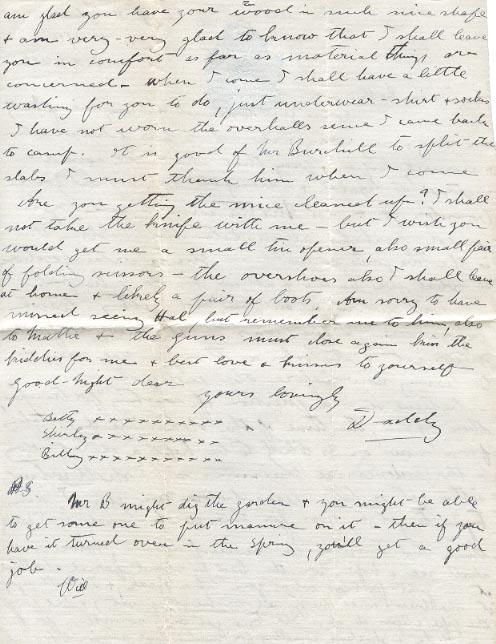 am glad you have your wood in such nice shape
& am very - very glad to know that I shall leave
you in comfort as far as material things are
concerned - when I come I shall have a little
washing for you to do, just underwear - shirt & socks
I have not worn the overhalls since I came back
to camp. It is good of Mr Burnhill to split the
slabs I must thank him when I come
Are you getting the mice cleaned up? I shall
not take the knife with me - but I wish you
would get me a small tin opener, also small pair
of folding scissors - the overshoes also I shall leave
at home & likely a pair of boots. Am sorry to have
missed seeing Hal, but remember me to him, also
to Mattie & the guns must close again kiss the
kiddies for me & best love & kisses to yourself
good-night dear
yours lovingly
Daddy
Betty x x x x x x x x x x
Shirley x x x x x x x x x x
Billy x x x x x x x x x x
PS
Mr B might dig the garden & you might be able
to get some one to put manure on it - then if you
have it turned over in the Spring, you'll get a good
job.
Will